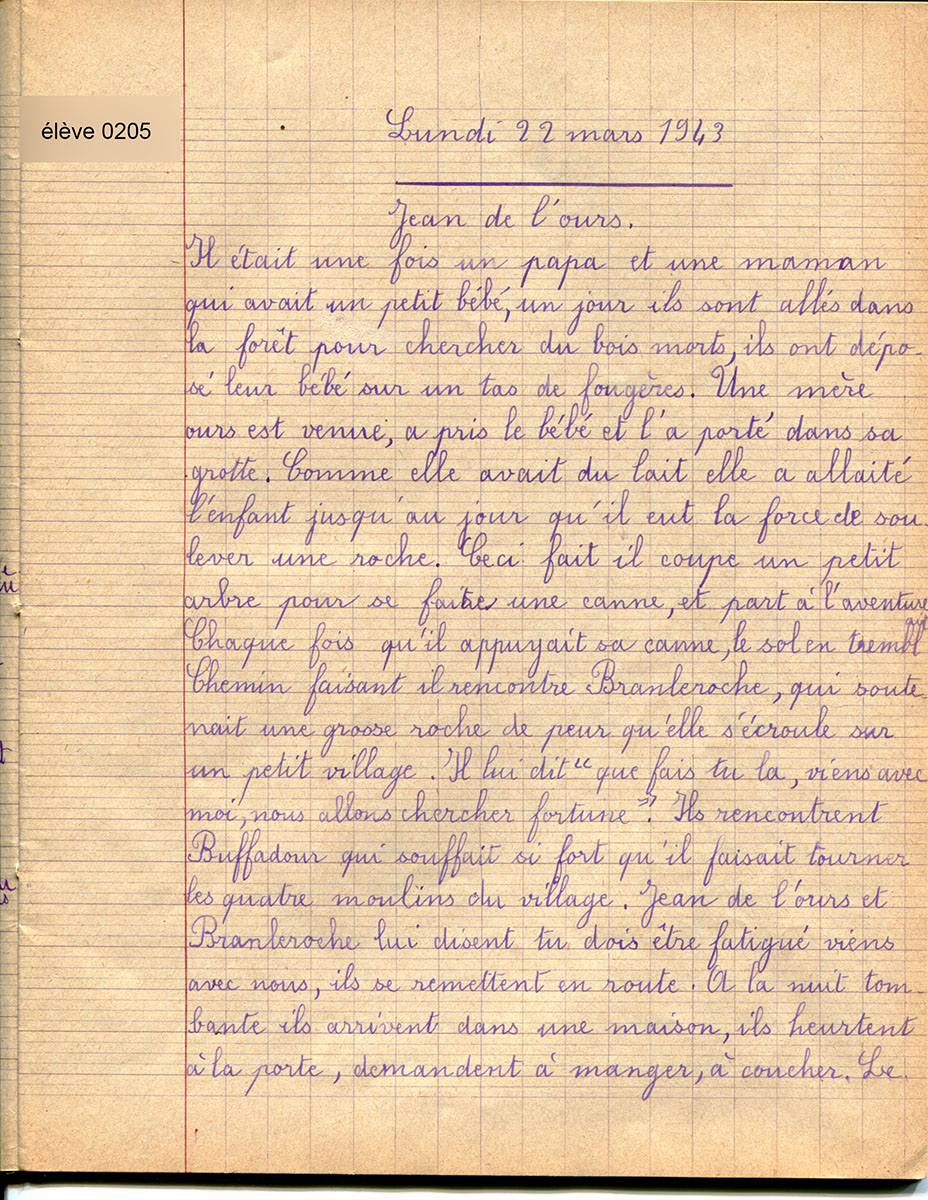 élève 0205
Lundi 22 mars 1943
Jean de l'ours.
Il était une fois un papa et une maman
qui avait un petit bébé, un jour ils sont allés dans
la forêt pour chercher du bois morts, ils ont dépo-
sé leur bébé sur un tas de fougères. Une mère
ours est venue, a pris le bébé et l'a porté dans sa
grotte. Comme elle avait du lait elle a allaité
l'enfant jusqu'au jour qu'il eut la force de sou-
lever une roche. Ceci fait il coupe un petit
arbre pour se faire une canne, et part à l'aventure
Chaque fois qu'il appuyait sa canne, le sol en trembl
Chemin faisant il rencontre Branleroche, qui soute-
nait une grosse roche de peur qu'elle s'écroule sur
un petit village. Il lui dit "que fais tu la, viens avec
moi, nous allons chercher fortune". Ils rencontrent
Buffadour qui souffait si fort qu'il faisait tourner
les quatre moulins du village. Jean de l'ours et
Branleroche lui disent tu dois être fatigué viens
avec nous, ils se remettent en route. A la nuit tom-
bante ils arrivent dans une maison, ils heurtent
à la porte, demandent à manger, à coucher. Le